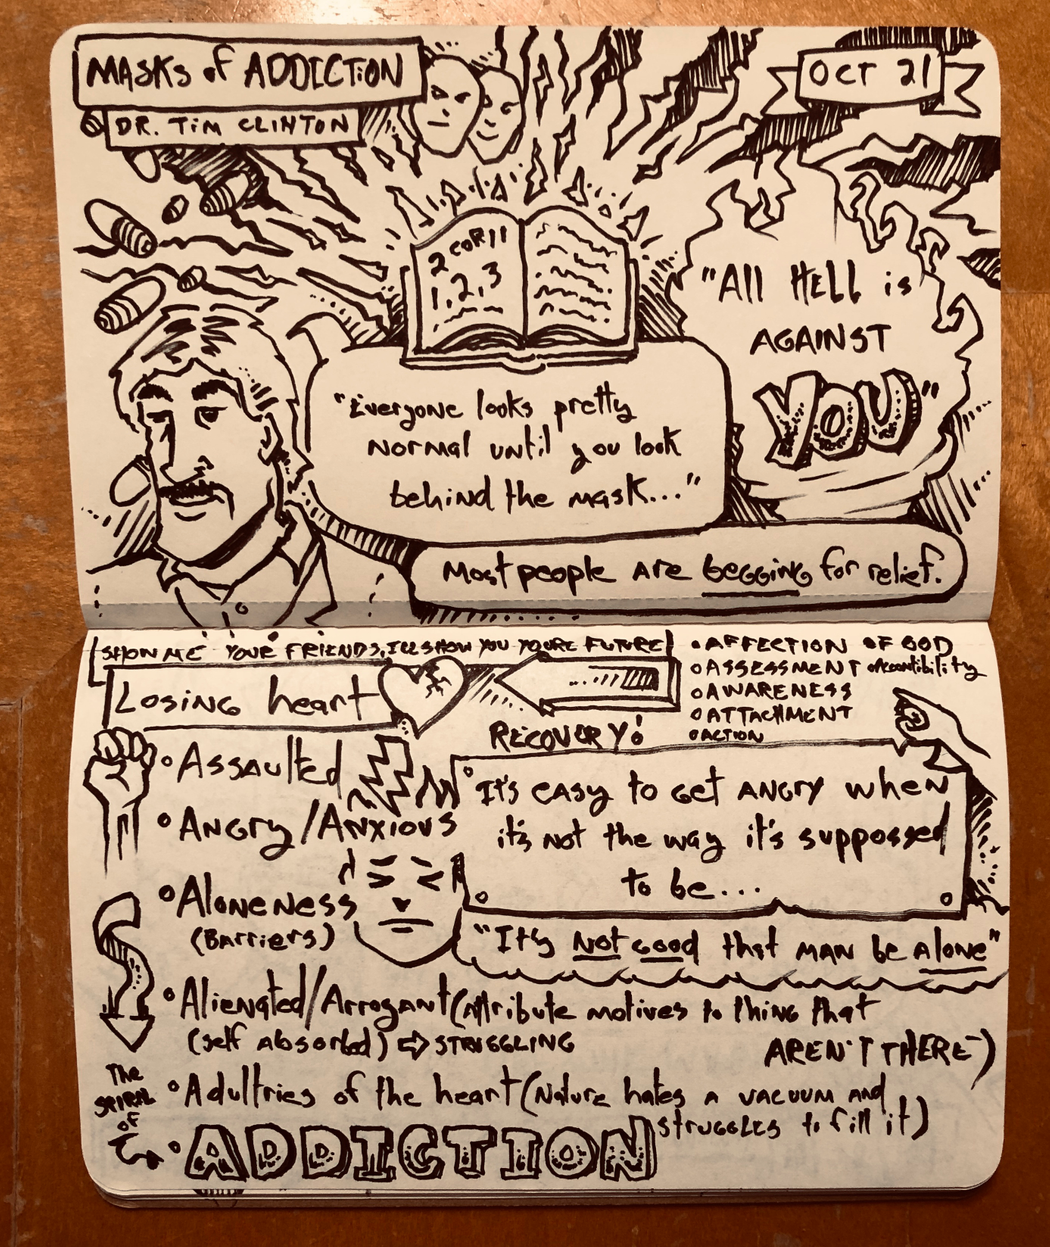 MASKS of ADDICTION
DR. TIM CLINTON
OCT 21
2 COR 11
1, 2, 3
"All HELL is
AGAINST
YOU"
"Everyone looks pretty
normal until you look
behind the mask..."
Most people are begging for relief.
SHOW ME YOUR FRIENDS, I'LL SHOW YOU YOURE FUTURE
Losing heart
RECOVERY!
• AFFECTION OF GOD
• ASSESSMENT
• AWARENESS
• ATTACHMENT
• ACTION
• Assaulted
• Angry/Anxious
• Aloneness
(Barriers)
It's easy to get angry when
it's not the way it's suppossed
to be...
"It's Not Good that man be alone"
• Alienated/Arrogant (Attribute motives to thing that
AREN'T THERE)
(self absorbed) ⇨ STRUGGLING
• Adultries of the heart (Nature hates a vacuum and
struggles to fill it)
The
SPIRAL
OF
• ADDICTION